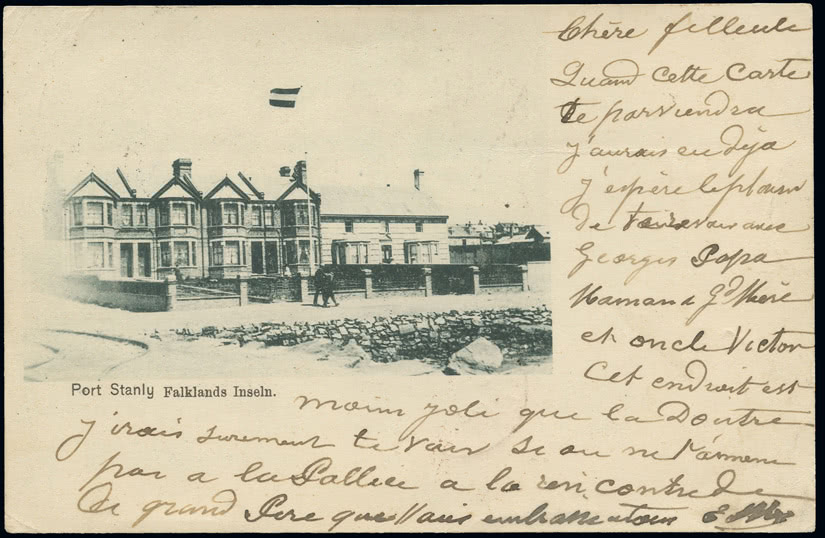 Chère filleule
Quand cette Carte
te parviendra
j'aurais eu déja
j'espère le plaisir
de te avec
Georges Papa
Maman & Gd Mère
et oncle Victor
Cet endroit est
Port Stanly Falklands Inseln.
moins joli que la Doutre
j'irais surement te voir si on ne t'amene
pas a la Pallice a la rencontre de
Ce grand Pere que Vais embrasse a tous